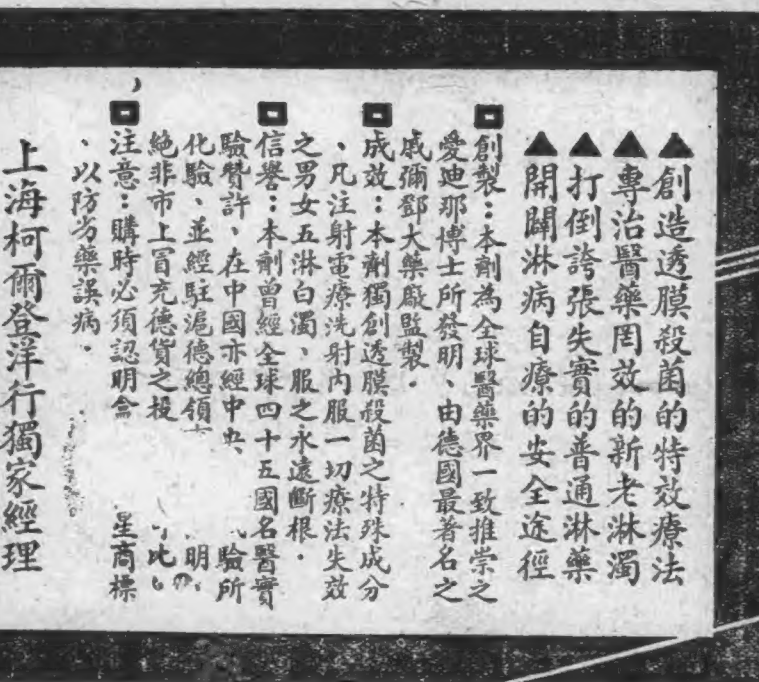 ▲創造透膜殺菌的特效療法
▲專治醫藥罔效的新老淋濁
▲打倒誇張失實的普通淋藥
▲開闢淋病自療的安全途徑
創製：本劑為全球醫藥界一致推崇之
愛迪那博士所發明、由德國最著名之
戚彌鄧大藥廠監製．
成效：本劑獨創透膜殺菌之特殊成分
、凡注射電療洗射內服一切療法失效
之男女五淋白濁、服之永遠斷根．
信譽：本劑曾經全球四十五國名醫實
驗贊許、在中國亦經中央 驗所
化驗、並經駐滬德總領 明、
絕非市上冒充德貨之投 比
注意：購時必須認明盒 星商標
、以防劣藥誤病．
上海柯爾登洋行獨家經理